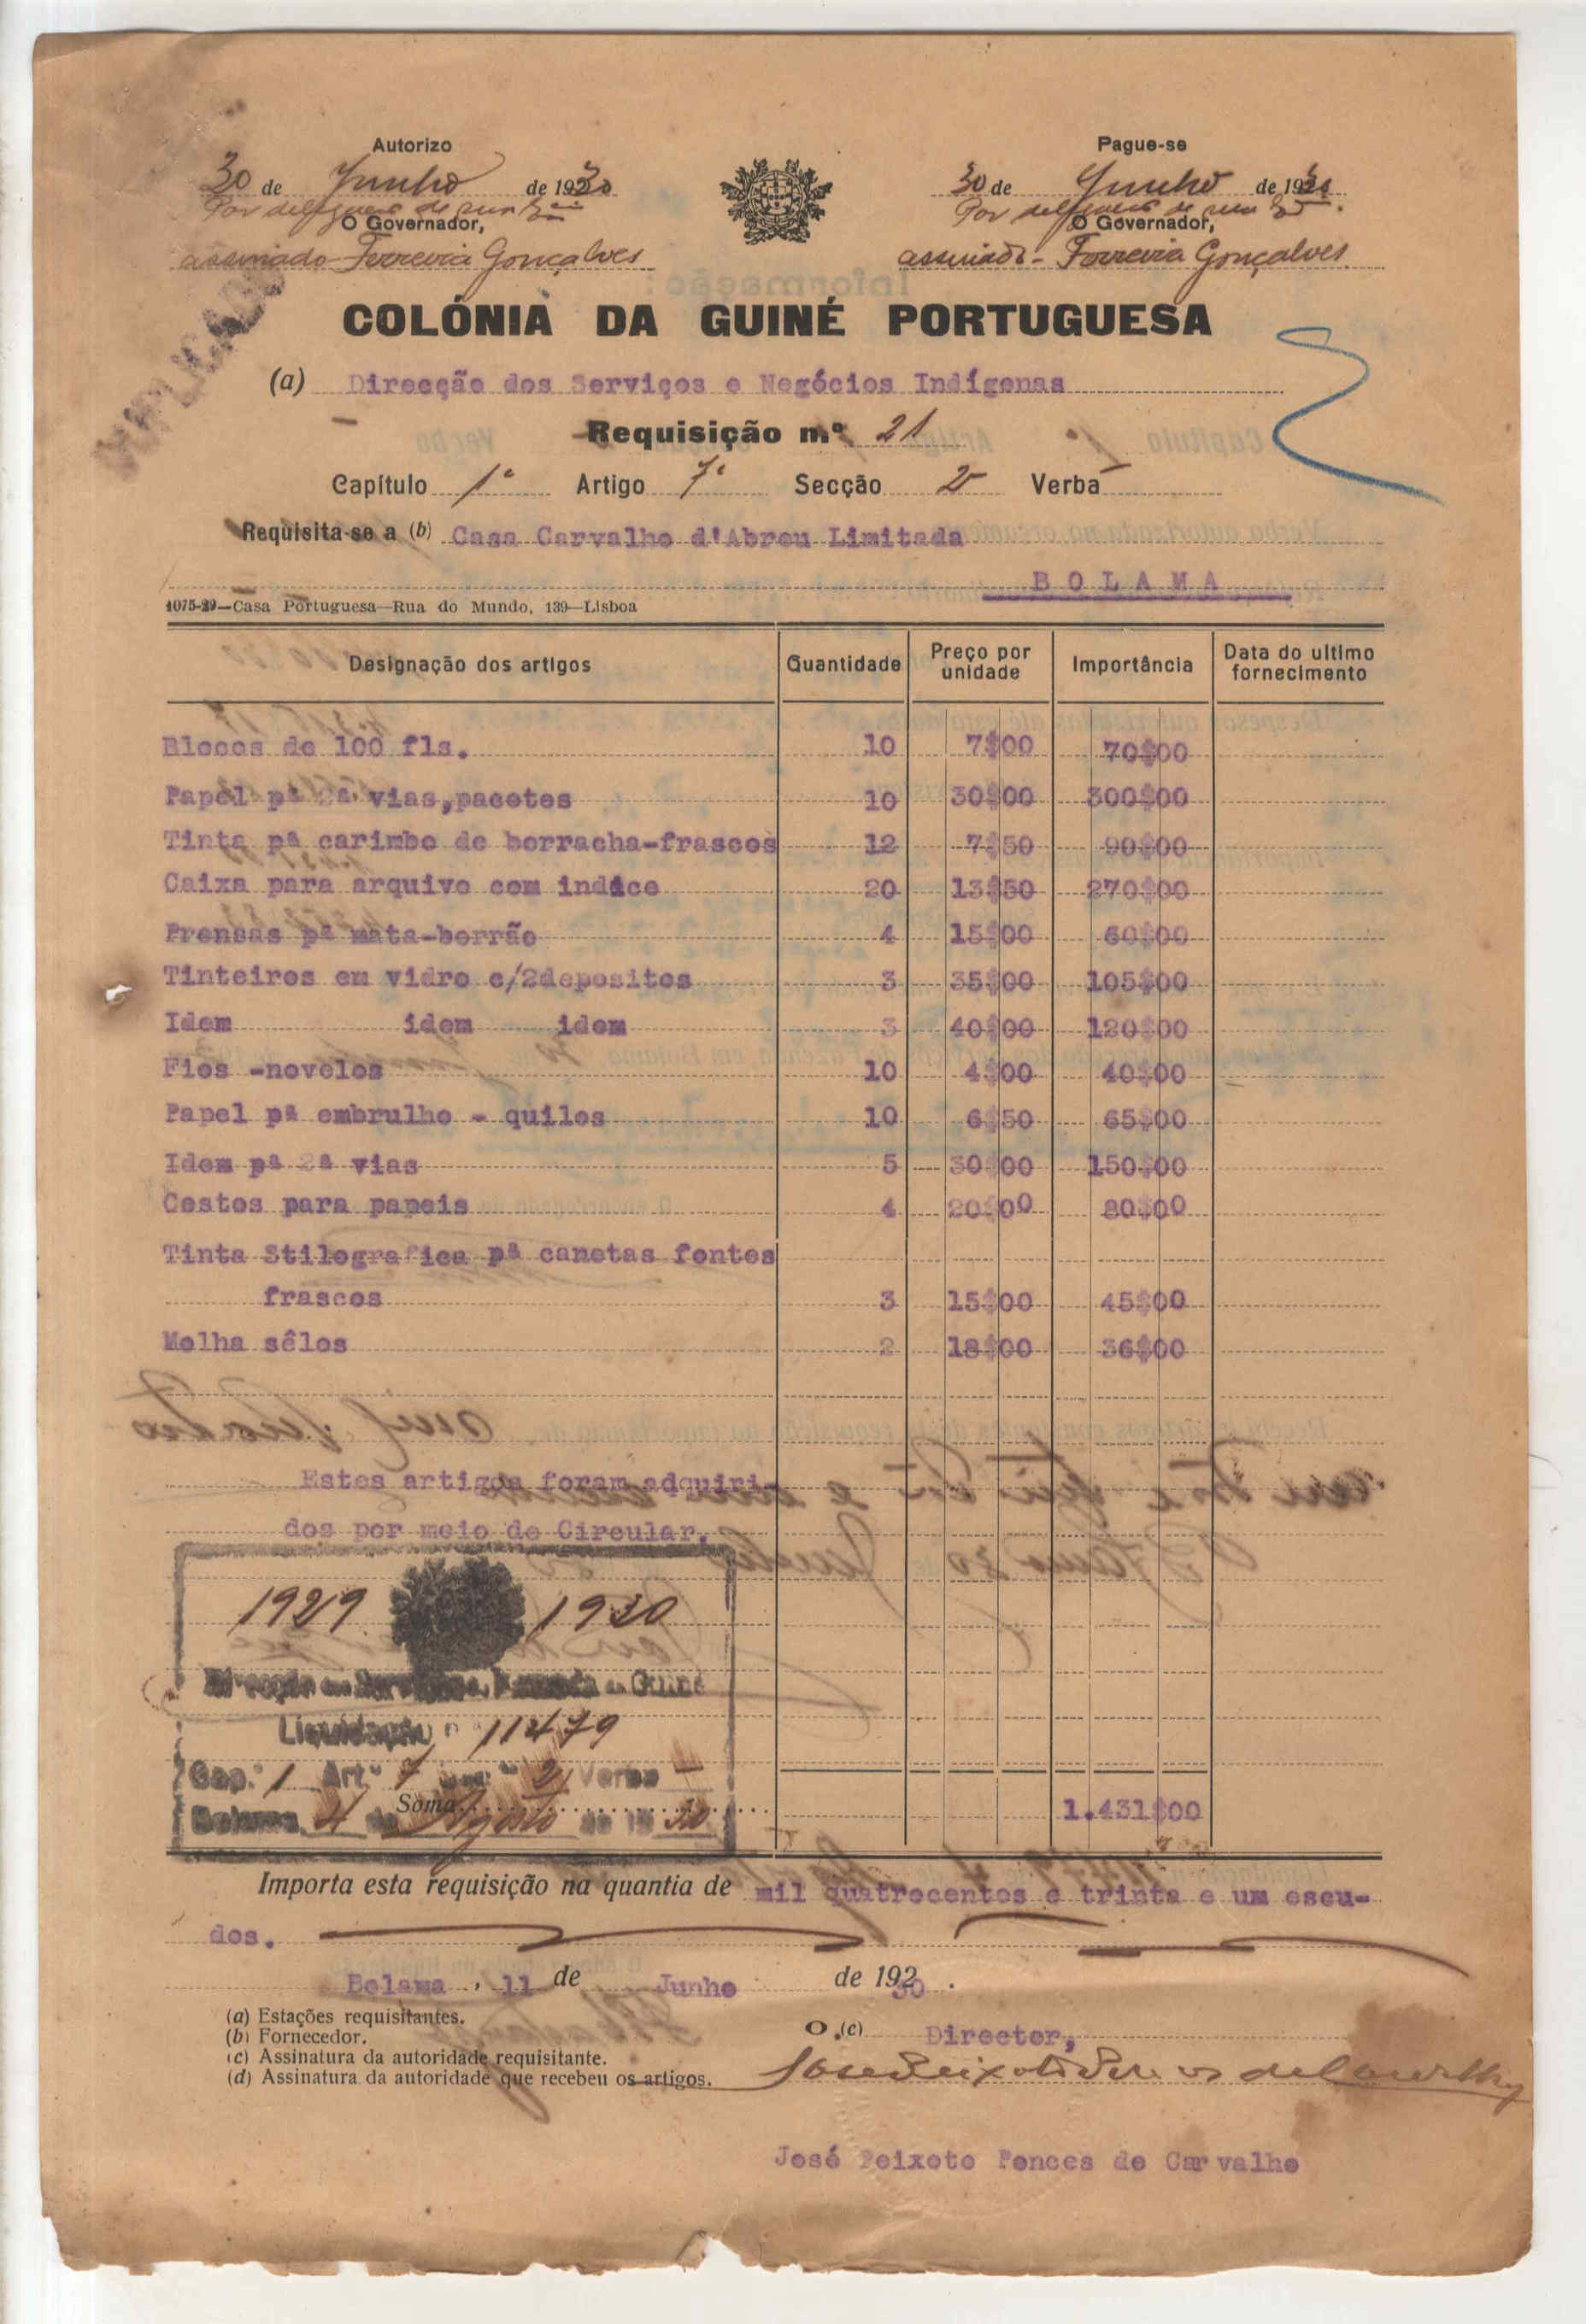 Autorizo
30 de Junho de 1930
Por delegação de sua Exª
O Governador,
assinado Ferreira Gonçalves
Pague-se
30 de Junho de 1930
Por delegação de sua Exª
O Governador,
assinado - Ferreira Gonçalves
DUPLICADO
COLÓNIA DA GUINÉ PORTUGUESA
(a) Direcção dos Serviços e Negócios Indígenas
Requisição n.º 21
Capítulo 1º Artigo 7º Secção 2ª Verba —
Requisita-se a (b) Casa Carvalho d'Abreu Limitada
BOLAMA
1075-29—Casa Portuguesa—Rua do Mundo, 139—Lisboa
Designação dos artigos Quantidade Preço por unidade Importância Data do ultimo fornecimento
Blocos de 100 fls. 10 7$00 70$00
Papel pª 2ª vias,pacotes 10 30$00 300$00
Tinta pª carimbo de borracha-frascos 12 7$50 90$00
Caixa para arquivo com indice 20 13$50 270$00
Prensas pª mata-borrão 4 15$00 60$00
Tinteiros em vidro c/2depositos 3 35$00 105$00
Idem idem idem 3 40$00 120$00
Fios -novelos 10 4$00 40$00
Papel pª embrulho - quilos 10 6$50 65$00
Idem pª 2ª vias 5 30$00 150$00
Cestos para papeis 4 20$00 80$00
Tinta Stilografica pª canetas fontes
frascos 3 15$00 45$00
Molha sêlos 2 18$00 36$00
Estes artigos foram adquiri-
dos por meio de Circular.
1929 1930
Direcção dos Serviços de Fazenda da Guiné
Liquidação n.º 11479
Cap.º 1 Artº 7 2ª Verba —
Bolama, 4 de Agosto de 1930
Soma 1.431$00
Importa esta requisição na quantia de mil quatrocentos e trinta e um escu-
dos.
Bolama, 11 de Junho de 1930.
(a) Estações requisitantes.
(b) Fornecedor.
(c) Assinatura da autoridade requisitante.
(d) Assinatura da autoridade que recebeu os artigos.
O (c) Director,
José Peixoto Ponces de Carvalho
José Peixoto Ponces de Carvalho